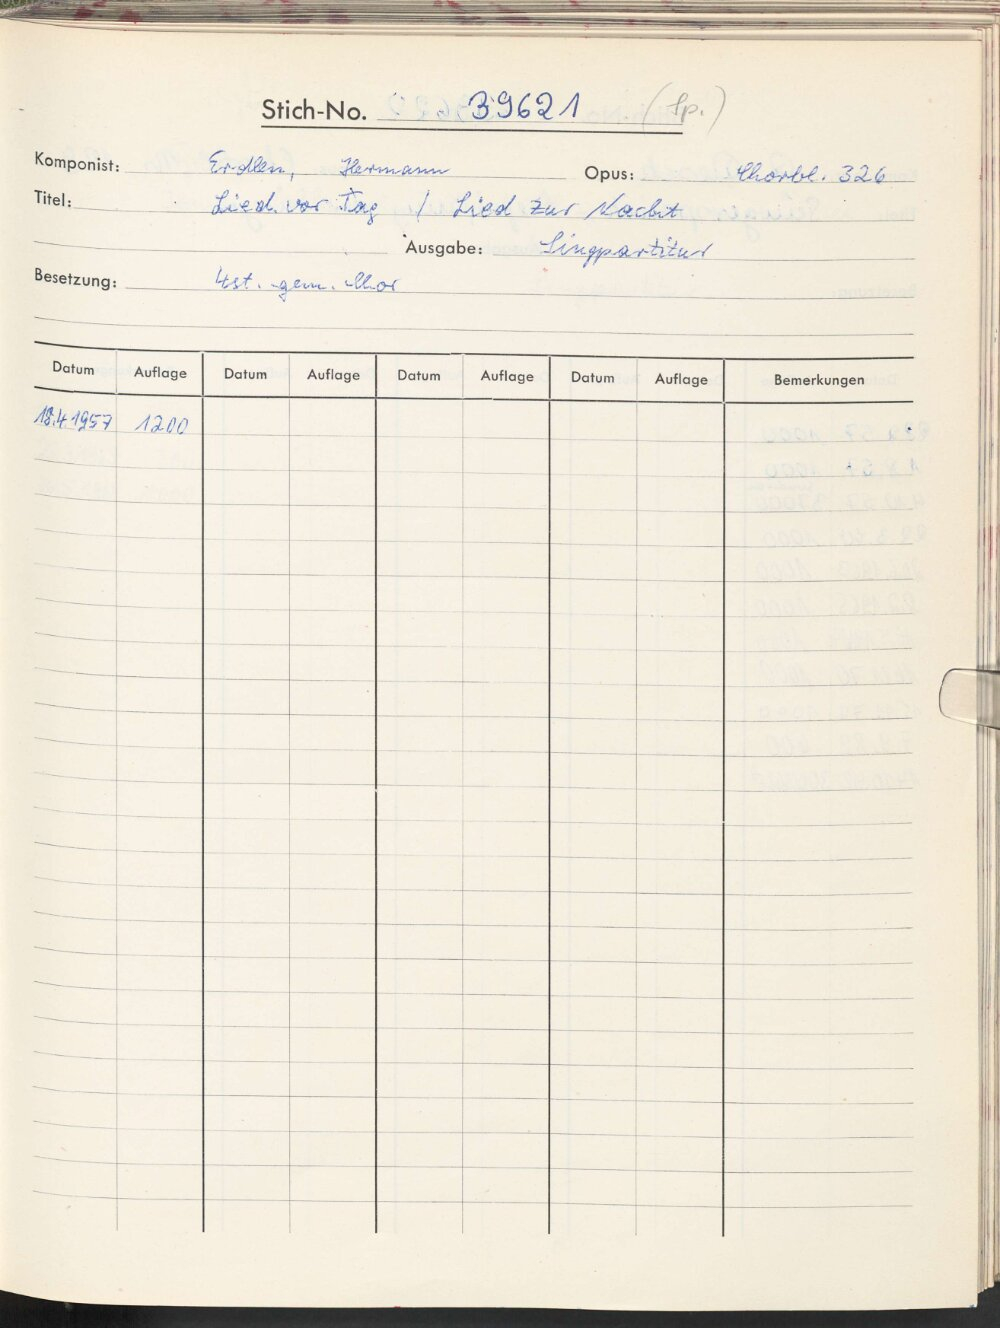 Stich-No. 39621 (Sp.)
Komponist: Erdlen, Hermann Opus: Chorbl. 326
Titel: Lied vor Tag / Lied zur Nacht
Ausgabe: Singpartitur
Besetzung: 4st. gem. Chor
Datum Auflage Datum Auflage Datum Auflage Datum Auflage Bemerkungen
18.4.1957 1200